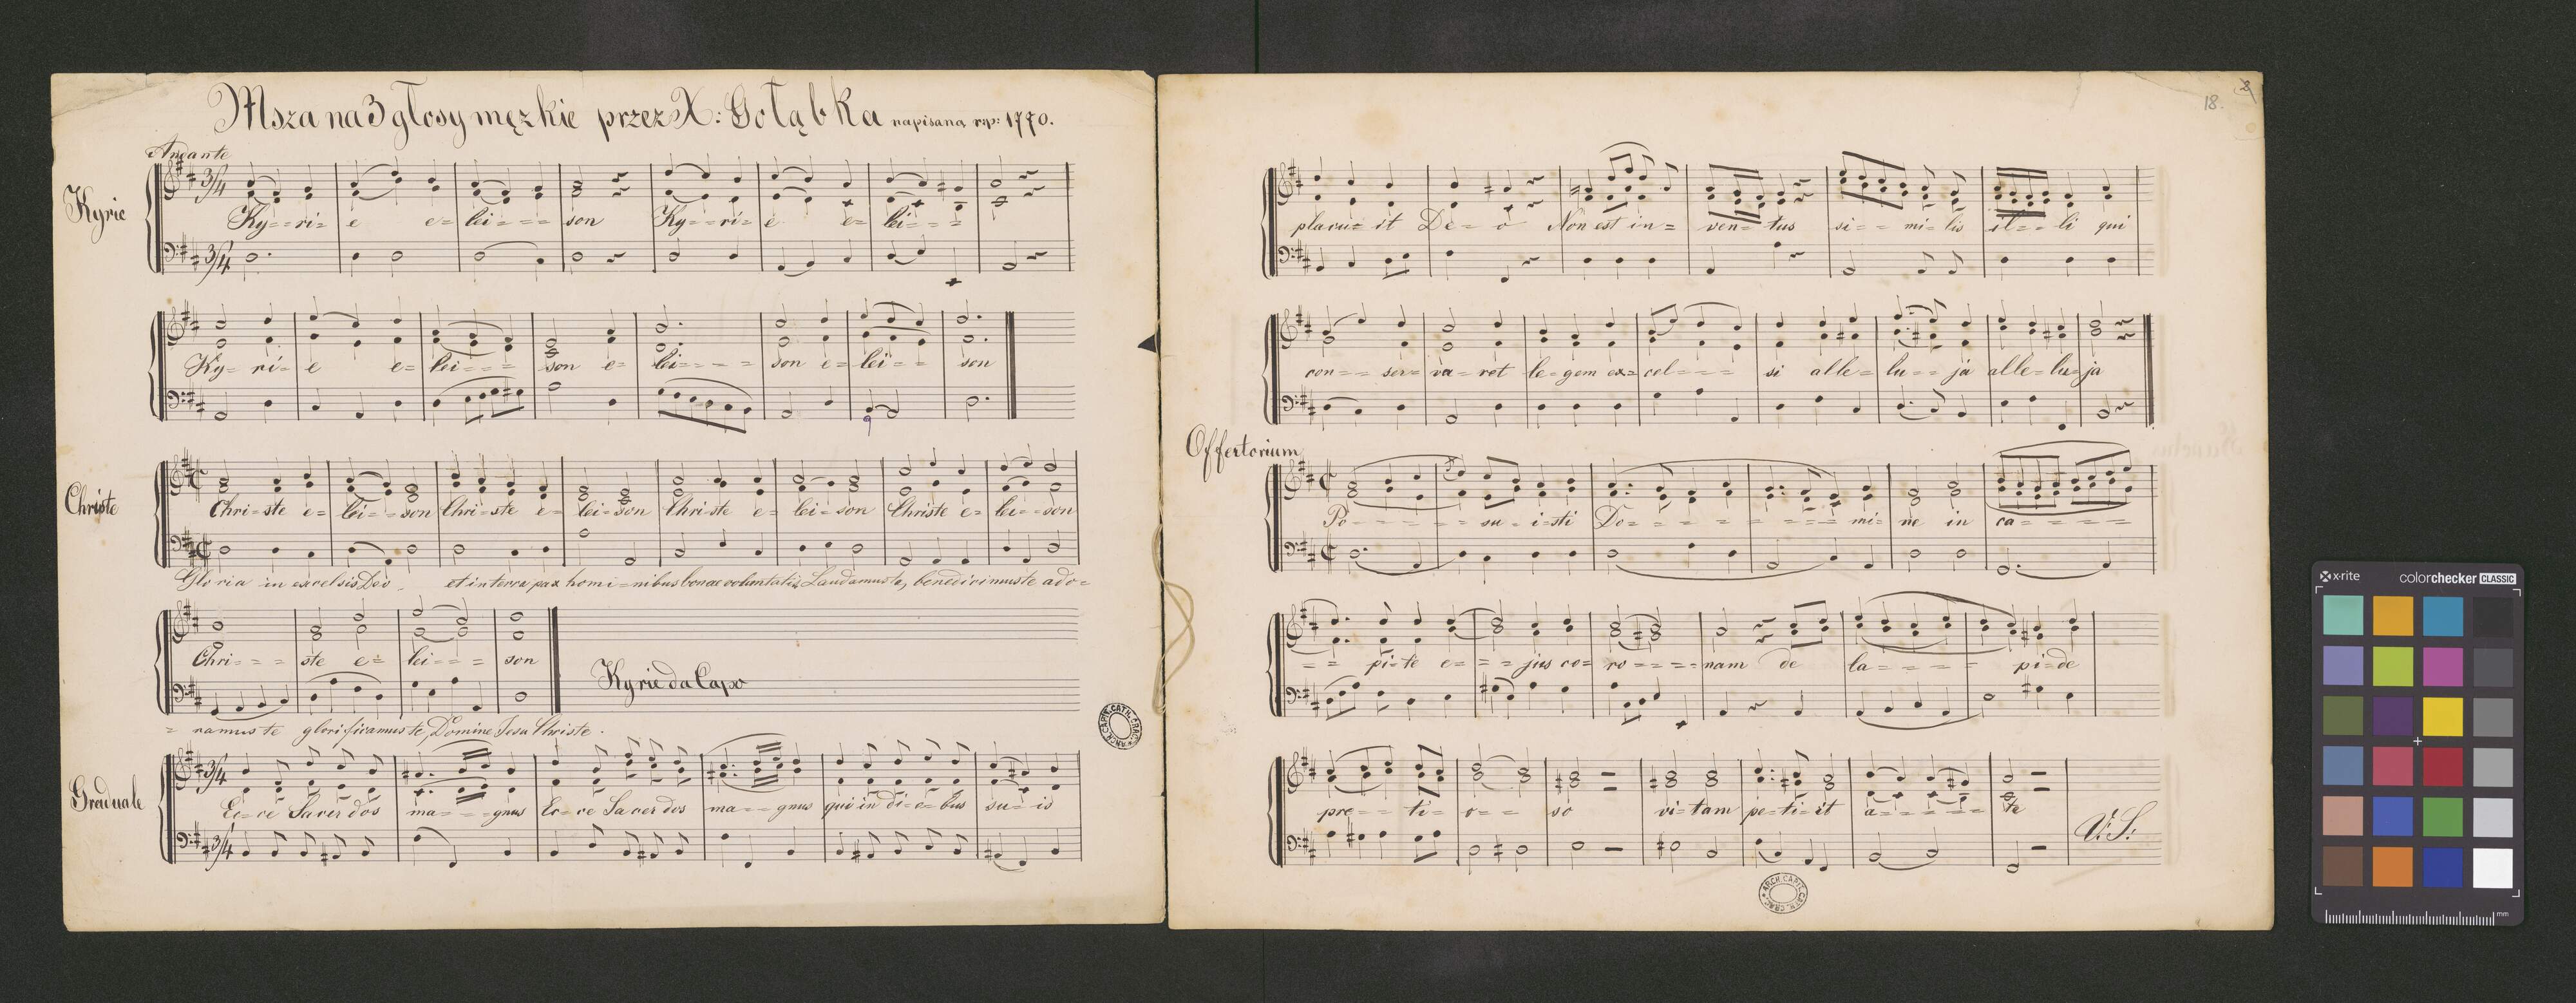 Msza na 3 głosy męzkie przez X: Gołąbka napisana r.p: 1770.
Andante
Kyrie
Ky - - ri = e e = lei = = = son Ky - - ri = e e = lei = = =
Ky = ri = e e = lei = = = son e = lei = - - = son e = lei = = son
Christe
Chri = ste e = lei = = son Chri = ste e = lei = son Christe e = lei = son Christe e = lei = = son
Gloria in excelsis Deo et in terra pax homi = nibus bonae voluntatis Laudamus te, benedicimus te ado =
Chri = = = ste e = lei = = = son
Kyrie da Capo
= ramus te glorificamus te, Domine Jesu Christe.
Graduale
Ec = ce Sacerdos ma = = = gnus Ec = ce Sacerdos ma = = gnus qui in di = e = bus su = is
18.
placu = it De = o Non est in = ven = tus si = = mi = lis il = = li qui
con = = ser = va = ret le = gem ex = cel = = = si alle = lu = = ja alle = lu = ja
Offertorium
Po = = = = = su = i = sti Do = = = = = = = = mi = ne in ca = = = = =
= = pi = te e = = = jus co = ro = = = = nam de la = = = = = pi = de
pre = = = ti = o = = so vi = tam pe = ti = it a = = = = = te
V: S:
ARCH. CAPIT. CATH. CRAC.
ARCH. CAPIT. CATH. CRAC.
x-rite colorchecker CLASSIC
mm